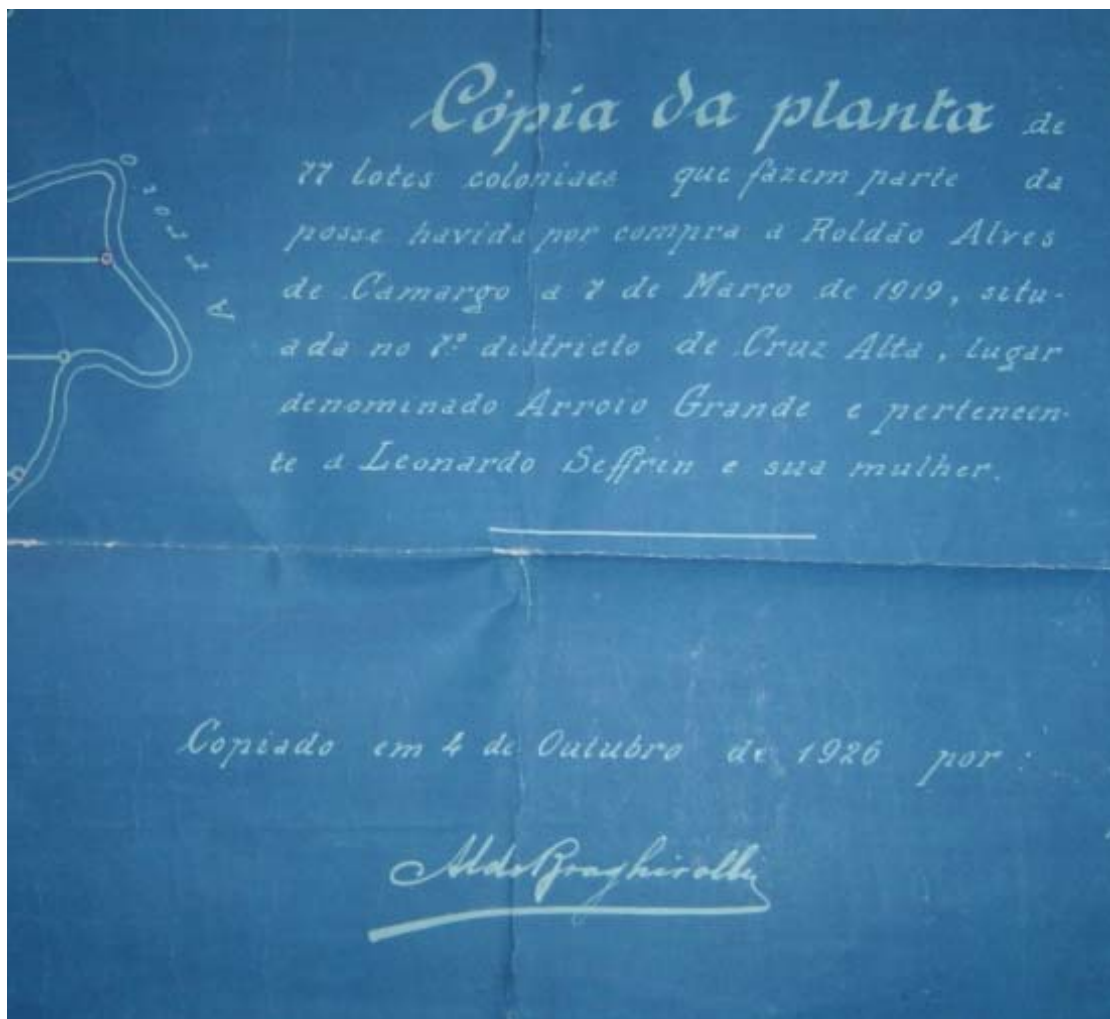 Cópia da planta de
77 lotes coloniaes que fazem parte da
posse havida por compra a Roldão Alves
de Camargo a 7 de Março de 1919, situ-
ada no 7º districto de Cruz Alta, lugar
denominado Arroio Grande e pertencen-
te a Leonardo Seffrin e sua mulher.
Arroio
Copiado em 4 de Outubro de 1926 por:
Aldo Braghirolli